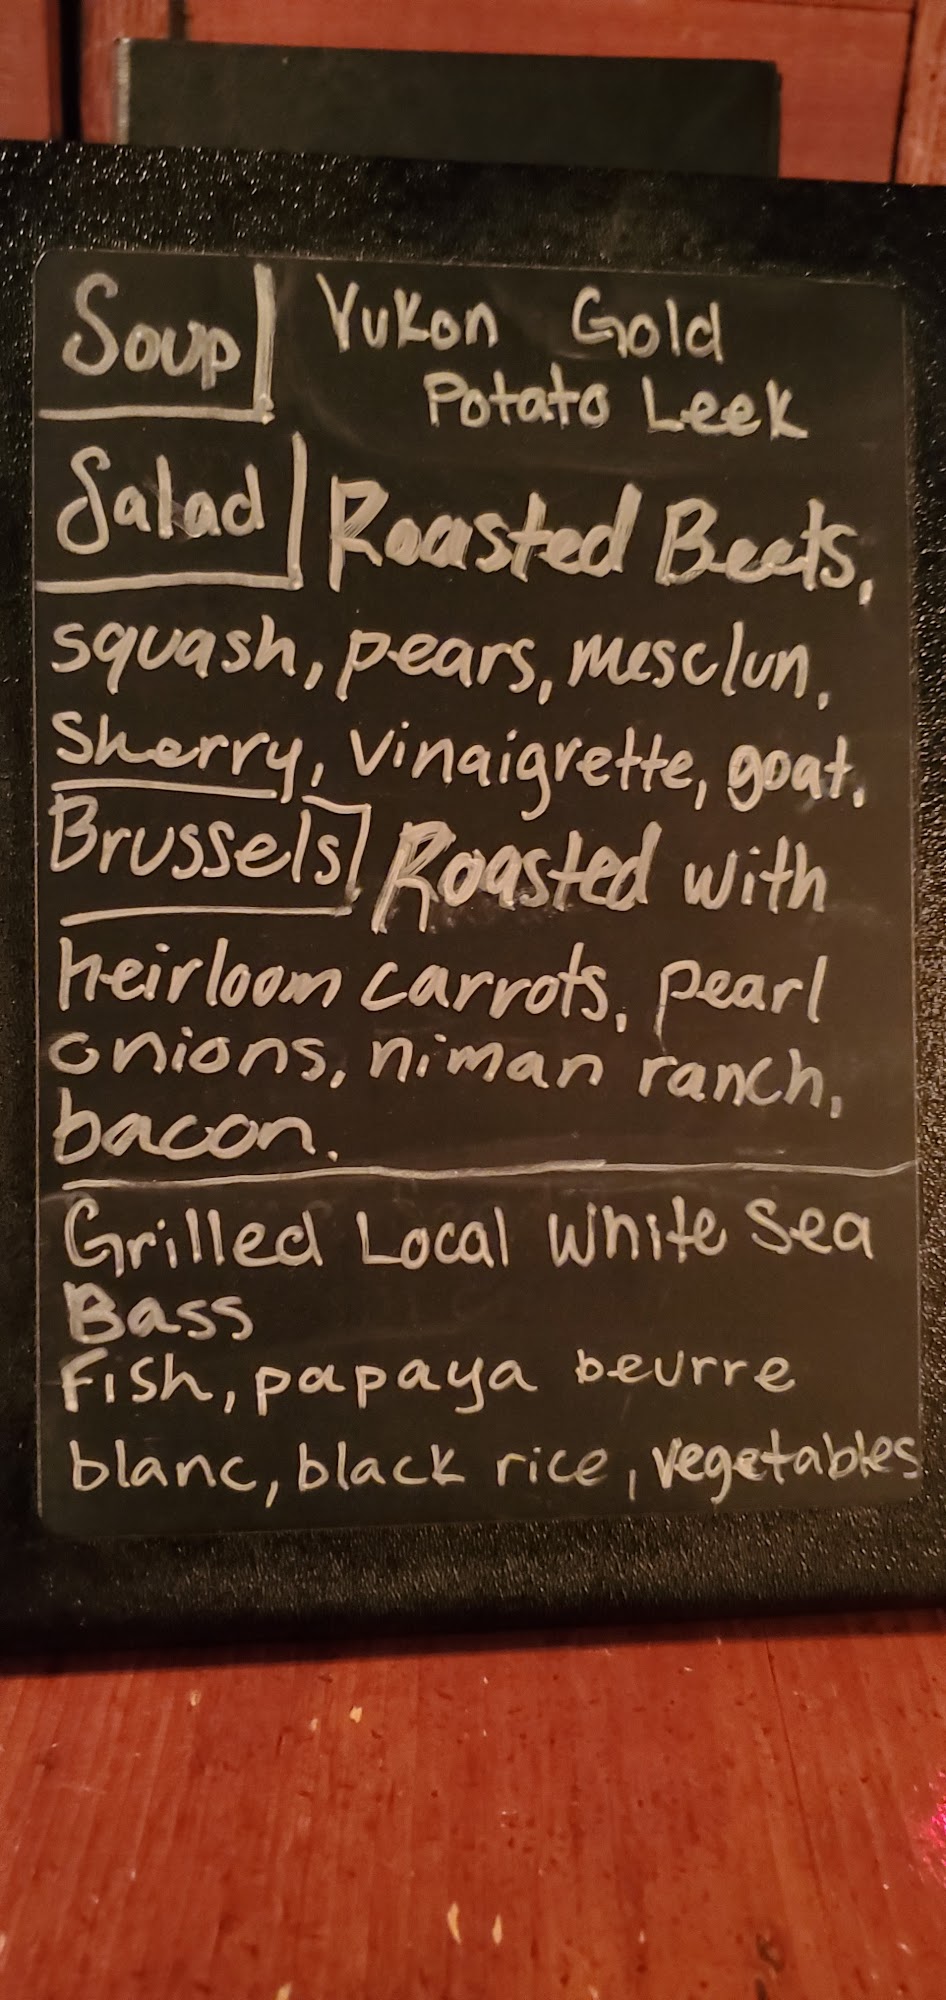 Soup Yukon Gold
Potato Leek
Salad Roasted Beets,
squash, pears, mesclun,
Sherry, vinaigrette, goat.
Brussels Roasted with
heirloom carrots, pearl
onions, niman ranch,
bacon.
Grilled Local White Sea
Bass
Fish, papaya beurre
blanc, black rice, vegetables